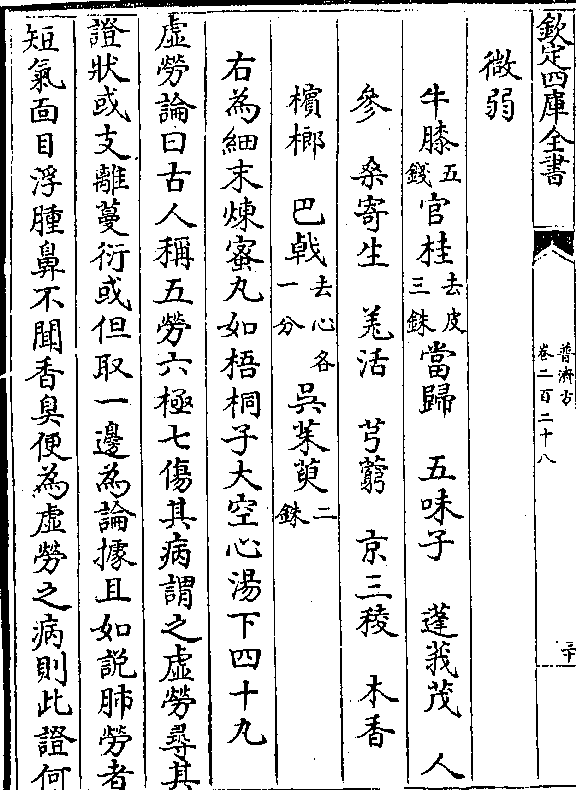 欽定四庫全書
普濟方
卷二百二十八
微弱
牛膝五錢 官桂去皮三銖 當歸 五味子 蓬莪茂 人
參 桑寄生 羌活 芎藭 京三稜 木香
檳榔 巴戟去心各一分 吳茱萸二銖
右為細末煉蜜丸如梧桐子大空心湯下四十九
虛勞論曰古人稱五勞六極七傷其病謂之虛勞尋其
證狀或支離蔓衍或但取一邊為論據且如說肺勞者
短氣面目浮腫鼻不聞香臭便為虛勞之病則此證何